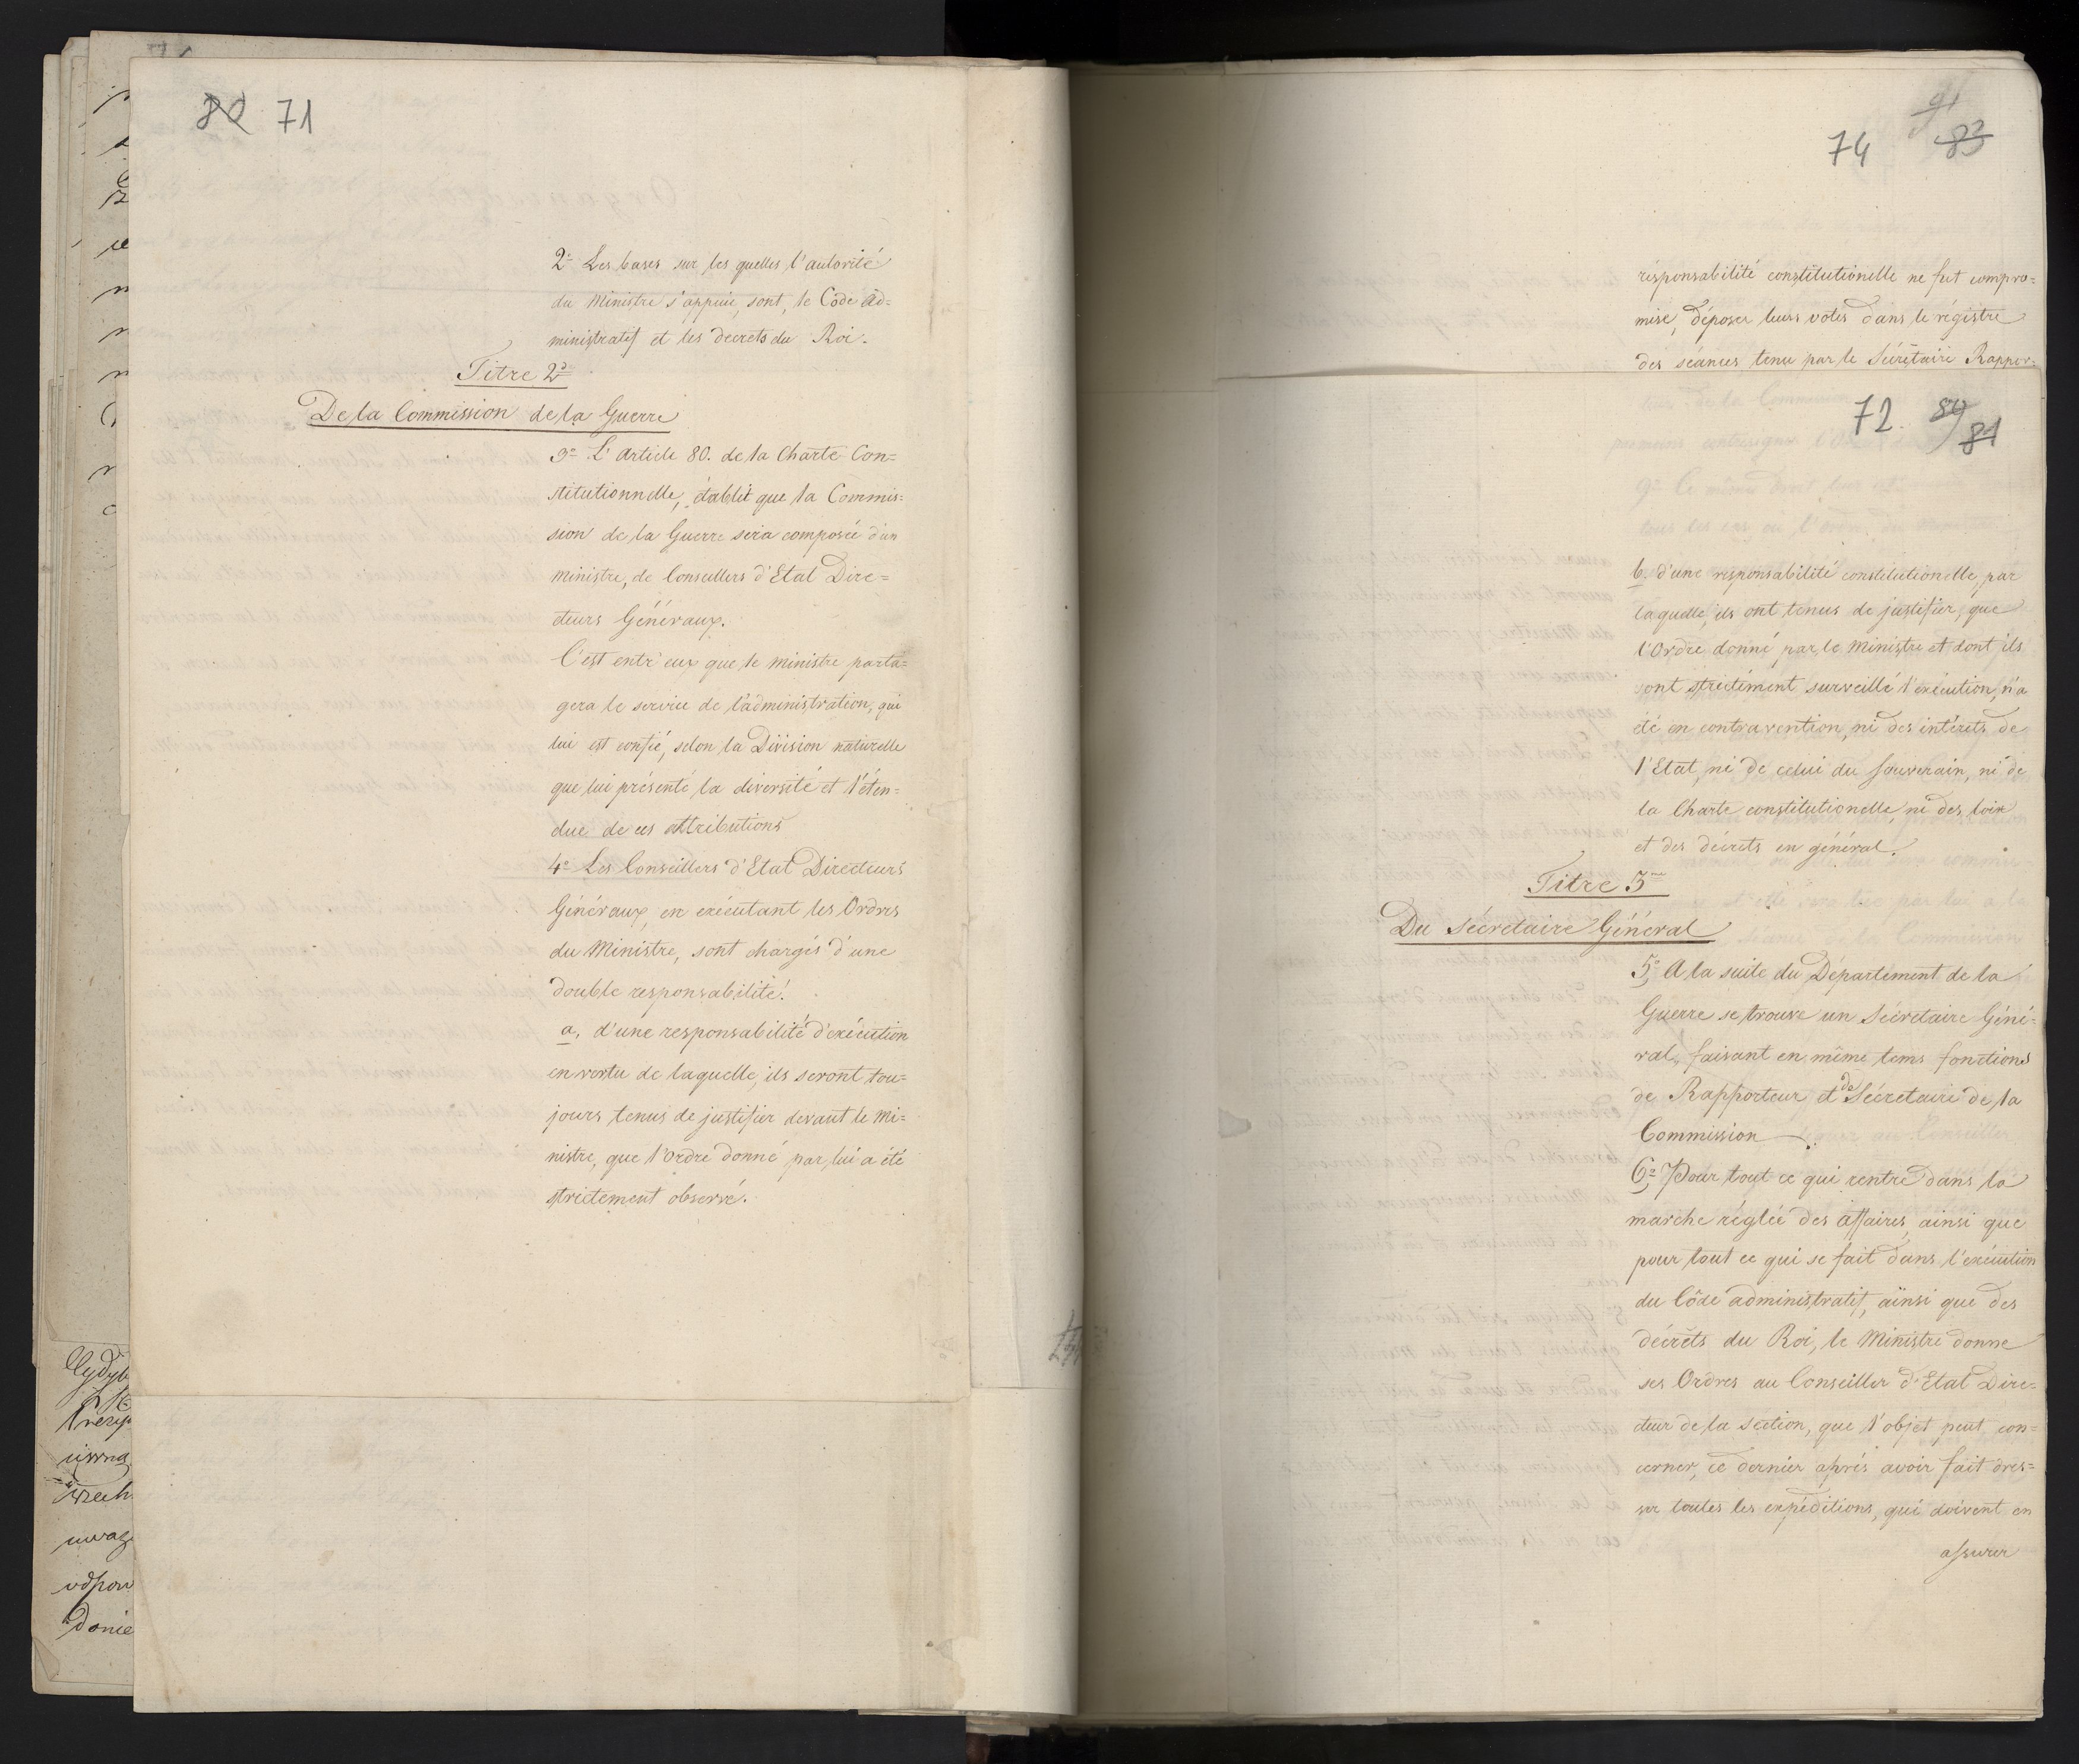 80 71
2º Les bases sur les quelles l'autorité
du Ministre s'appuie, sont, le Code Ad=
ministratif et les decrets du Roi.
Titre 2d
De la Commission de la Guerre
3º L'Article 80. de la Charte Con=
stitutionnelle, établit que la Commis=
sion de la Guerre sera composée d'un
Ministre, de Conseillers d'Etat Dire=
cteurs Généraux.
C'est entr'eux que le Ministre parta=
gera le service de l'administration, qui
lui est confié, selon la Division naturelle
que lui présente la diversité et l'éten=
due de ces attributions
4º Les Conseillers d'Etat Directeurs
Généraux, en exécutant les Ordres
du Ministre, sont chargés d'une
double responsabilité.
a, d'une responsabilité d'exécution
en vertu de laquelle, ils seront tou=
jours tenus de justifier devant le Mi=
nistre, que l'Ordre donné par lui a été
strictement observé.
Wydyb
trzezy
uwag
odpow
donie
91
74 83
résponsabilité constitutionelle ne fut compro=
mise, déposer leurs votes dans le régistre
des séances tenu par le Sécrétaire Rappor=
72. 89
81
b. d'une résponsabilité constitutionelle, par
laquelle, ils ont tenus de justifier, que
l'Ordre donné par le Ministre et dont ils
ont strictement surveillé l'exécution, n'a
été en contravention, ni des intérêts de
l'Etat, ni de celui du Souverain, ni de
la Charte constitutionelle, ni des loix
et des décrets en général.
Titre 3me
Du Sécretaire Général
5º A la suite du Département de la
Guerre se trouve un Sécretaire Géné=
ral, faisant en même tems fonctions
de Rapporteur et de Sécretaire de la
Commission.
6º Pour tout ce qui rentre dans la
marche réglée des affaires, ainsi que
pour tout ce qui se fait dans l'exécution
du Côde administratif, aïnsi que des
décrets du Roi, le Ministre donne
ses Ordres au Conseiller d'Etat Dire=
cteur de la section, que l'objet peut con=
cerner, ce dernier aprés avoir fait dres=
ser toutes les expéditions, qui doivent en
assurer